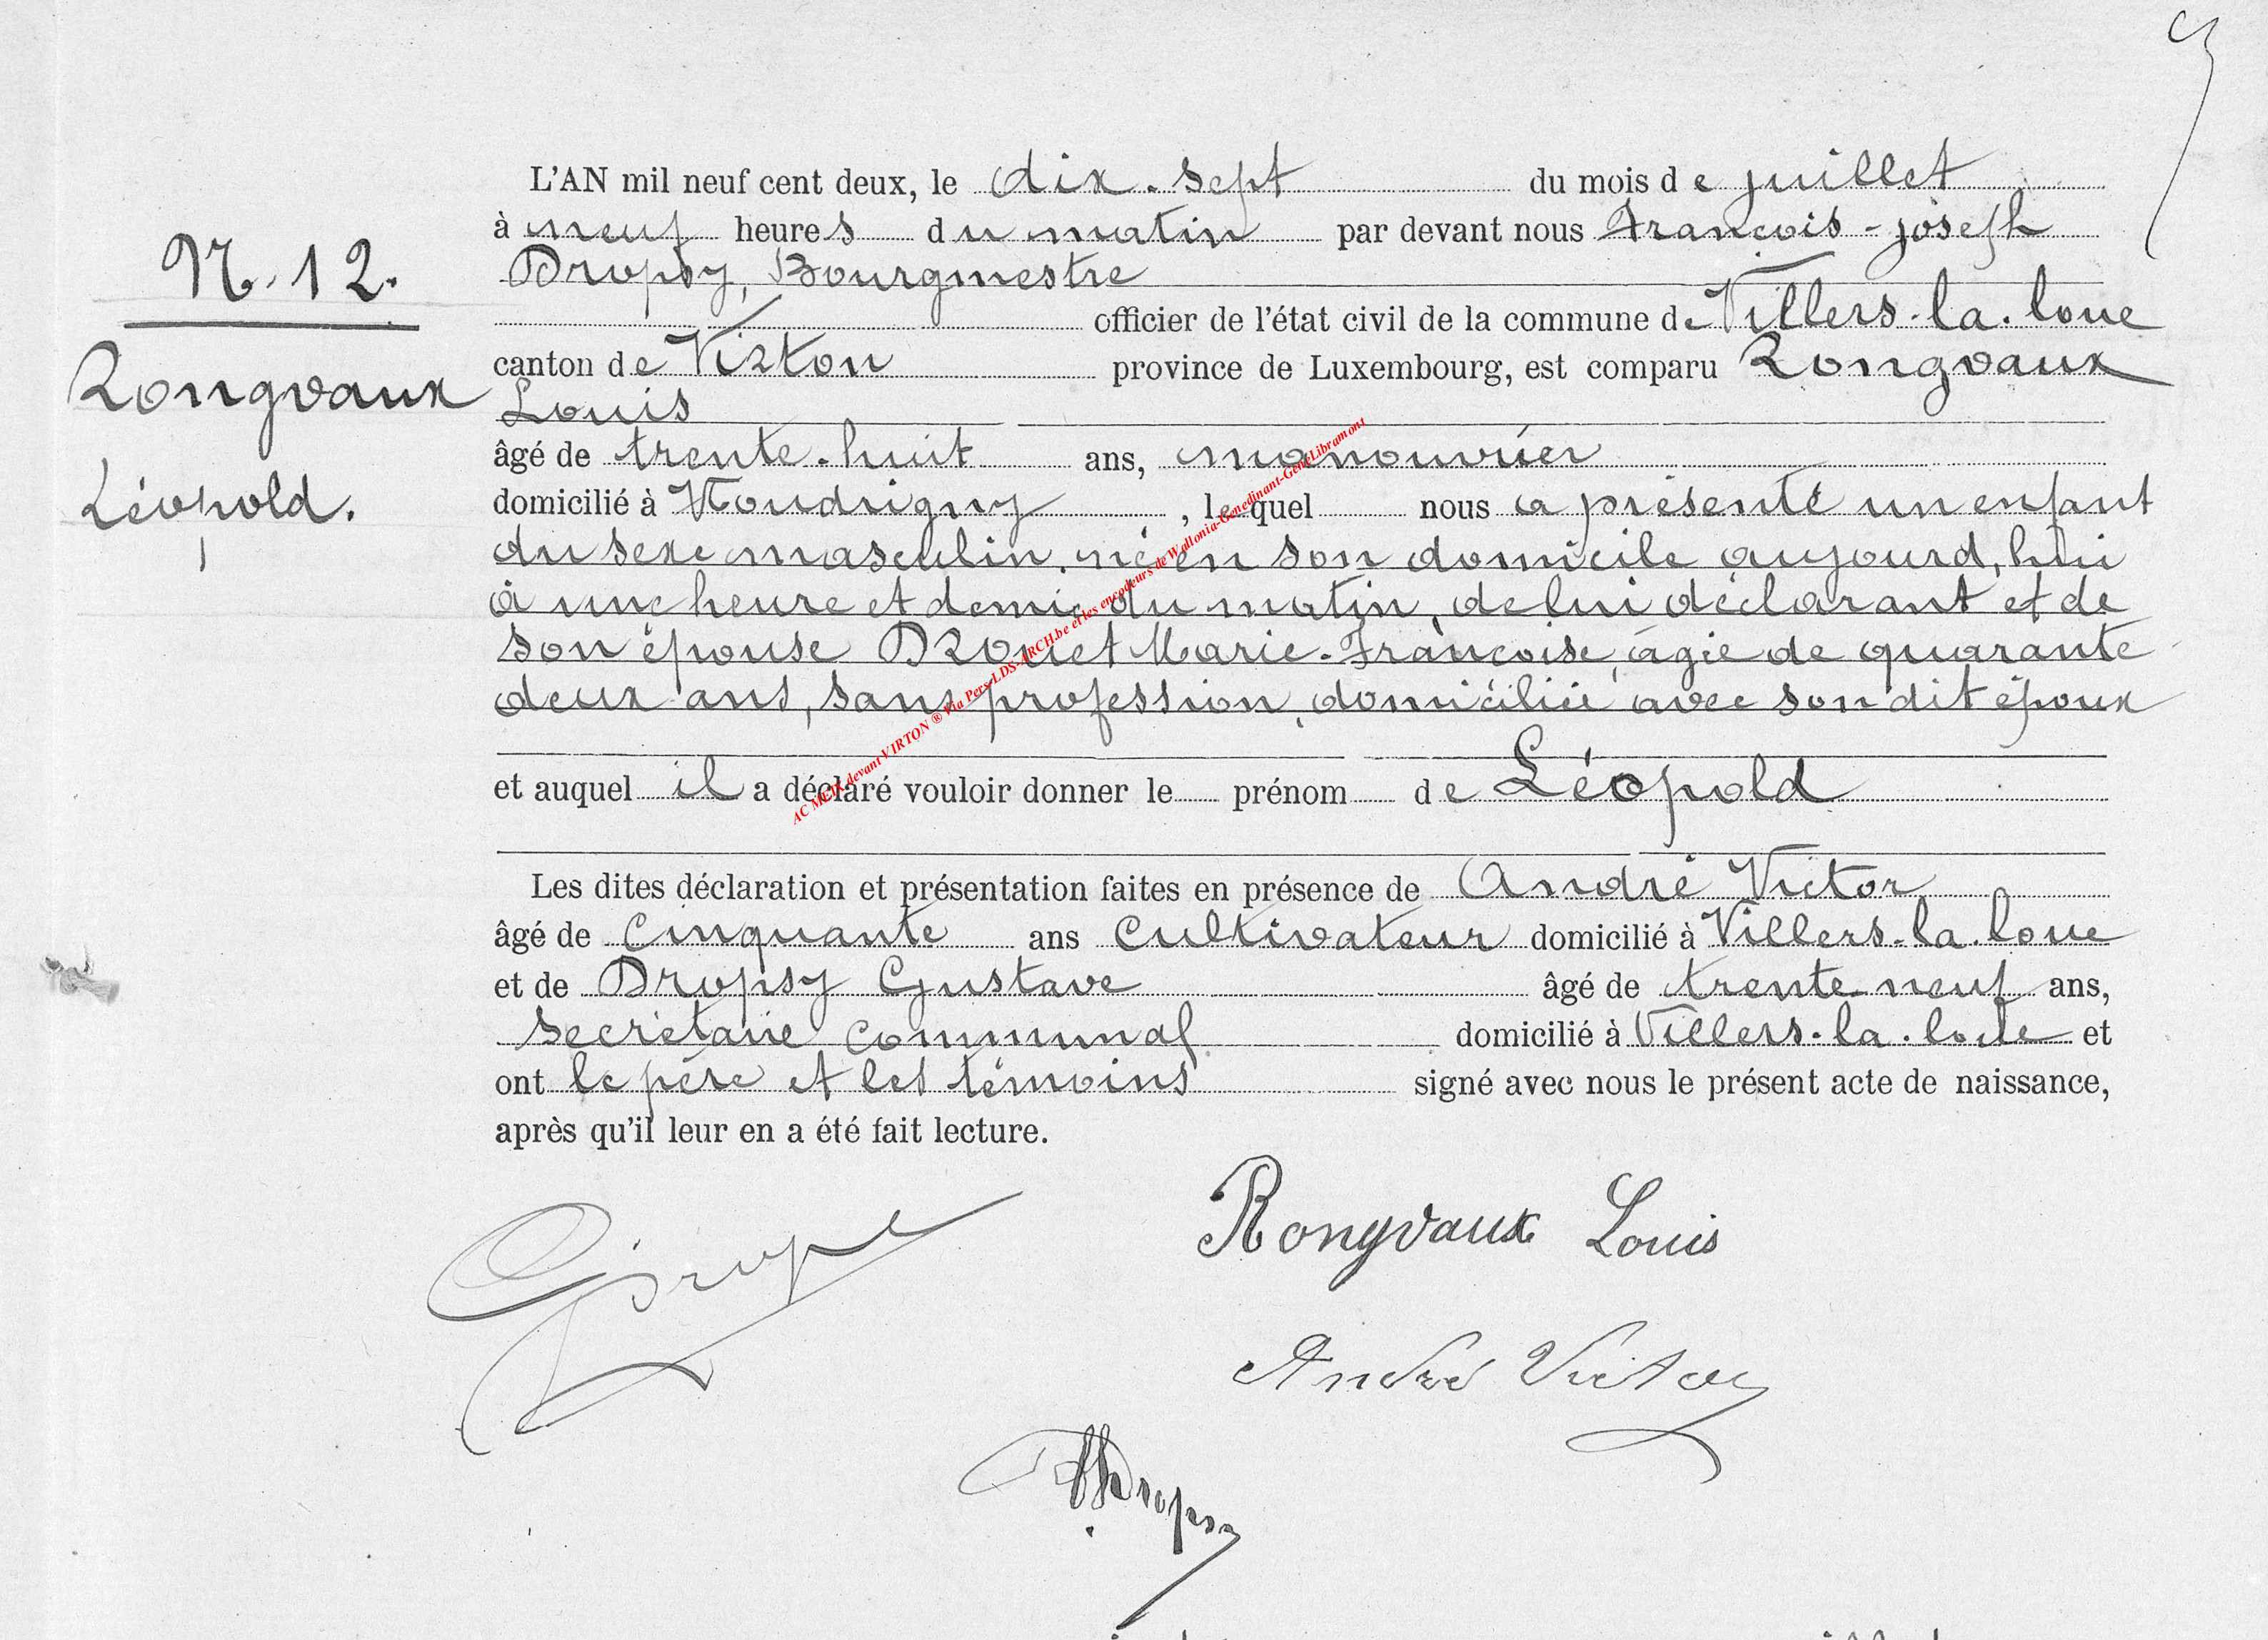 N. 12.
Rongvaux
Léopold.
L'AN mil neuf cent deux, le dix-sept du mois de juillet
à neuf heures du matin par devant nous François-joseph
Dropsy, Bourgmestre
officier de l'état civil de la commune de Villers-la-loue
canton de Virton province de Luxembourg, est comparu Rongvaux
Louis
âgé de trente-huit ans, manouvrier
domicilié à Houdrigny, lequel nous a présenté un enfant
du sexe masculin, né en son domicile aujourd'hui
à une heure et demie du matin, de lui déclarant et de
son épouse Drouet Marie-Françoise, âgée de quarante
deux ans, sans profession, domiciliée avec son dit époux
et auquel il a déclaré vouloir donner le prénom de Léopold
Les dites déclaration et présentation faites en présence de André Victor
âgé de cinquante ans cultivateur domicilié à Villers-la-loue
et de Dropsy Gustave âgé de trente neuf ans,
secrétaire communal domicilié à Villers-la-loue et
ont le père et les témoins signé avec nous le présent acte de naissance,
après qu'il leur en a été fait lecture.
Rongvaux Louis
André Victor
Dropsy
AC MEIX devant VIRTON ® Via Pers-LDS-ARCH.be et les encodeurs de Wallonia-Genedinant-GeneLibramont